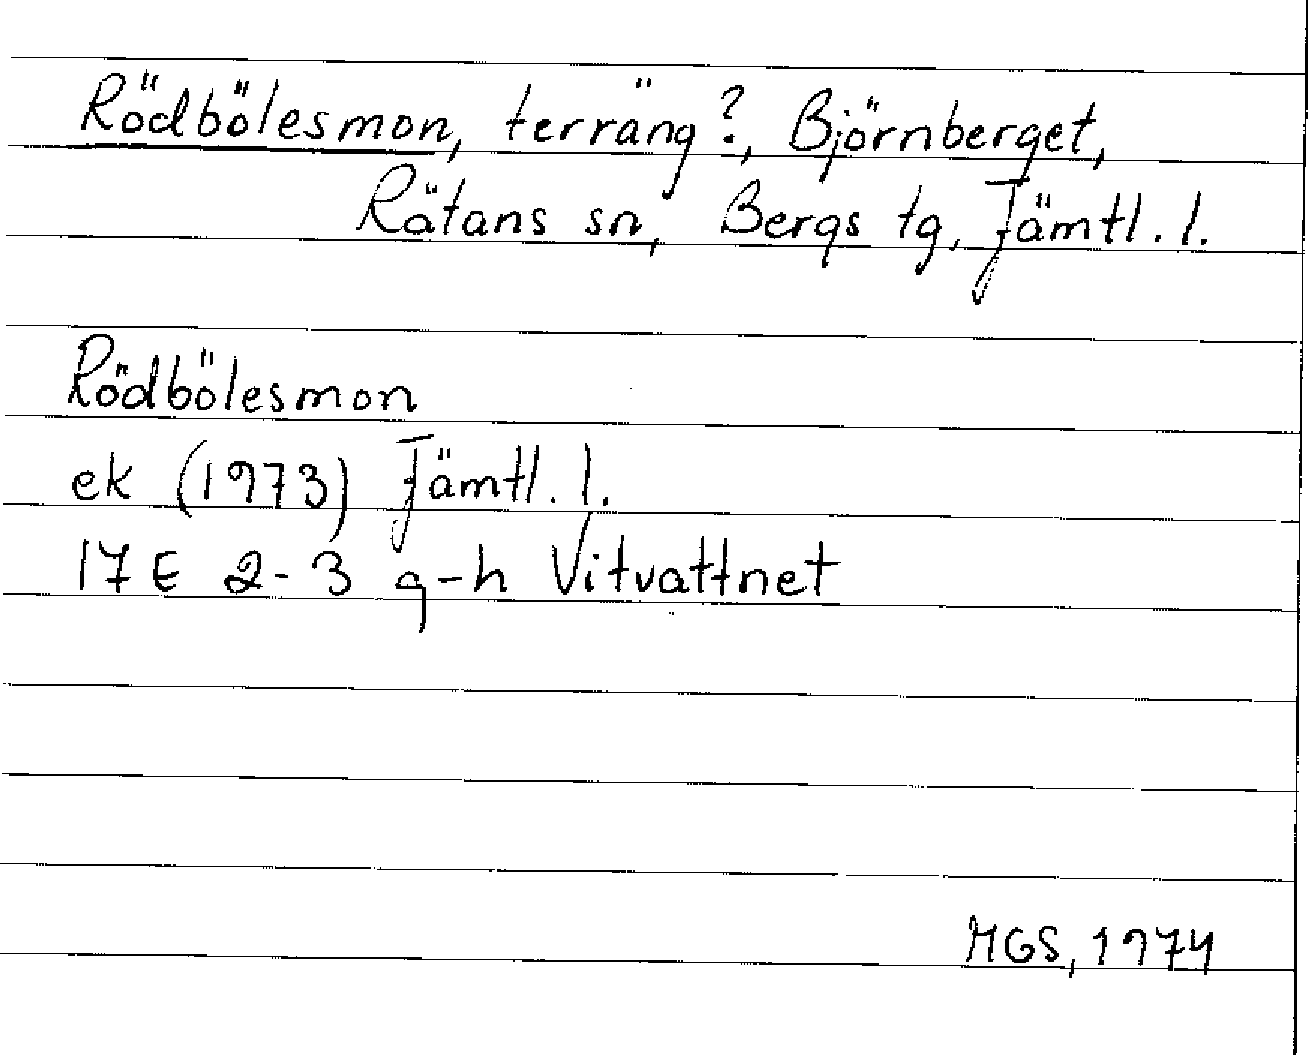 Rödbölesmon, terräng?, Björnberget,
Rätans sn, Bergs tg, Jämtl. l.
Rödbölesmon
ek (1973) Jämtl. l.
17 E 2-3 g-h Vitvattnet
MGS, 1974